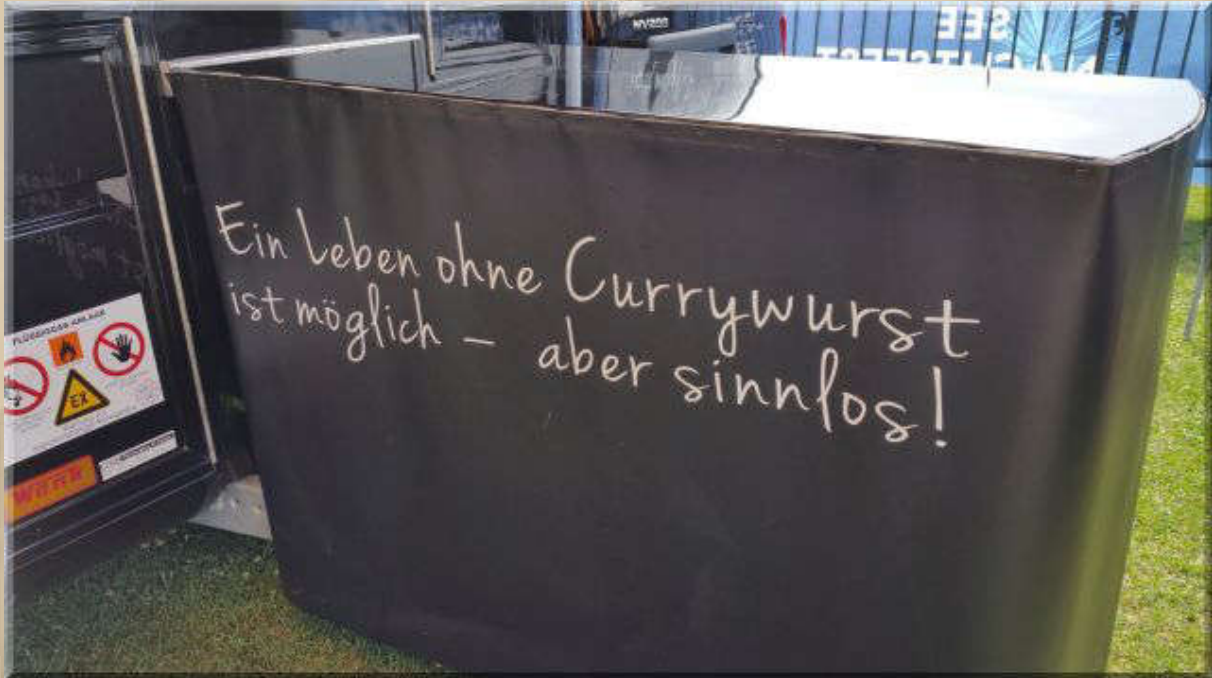 SEE
Ein Leben ohne Currywurst
ist möglich – aber sinnlos!
FLÜSSIGGAS-ANLAGE
EX